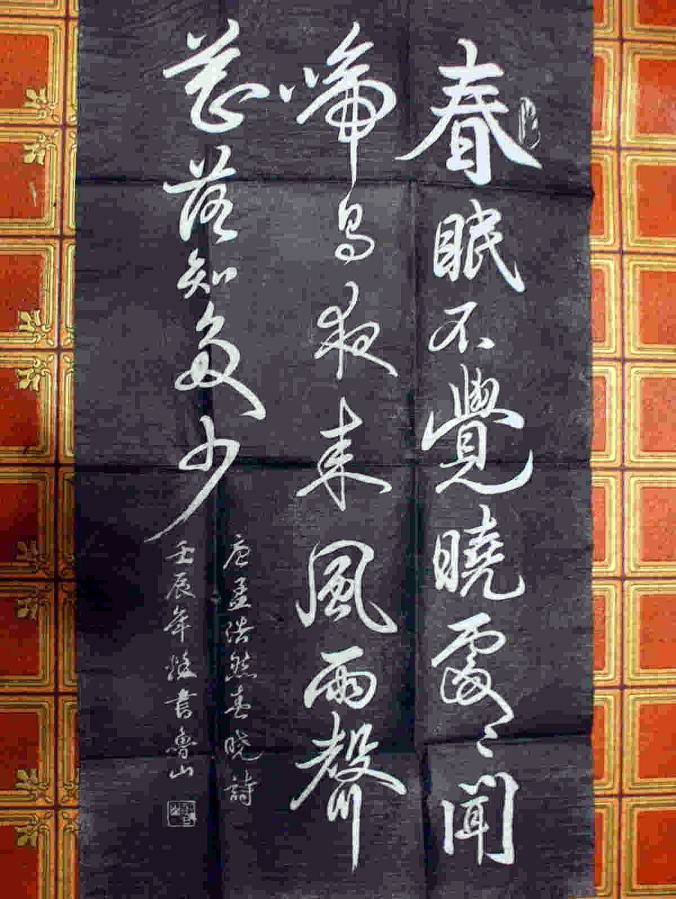 春眠不覺曉處〻聞
啼鳥夜来風雨聲
花落知多少
唐孟浩然春晓詩
壬辰年 書魯山